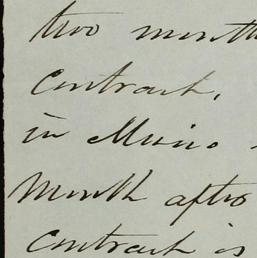 two month
contract,
in
month after
contract is